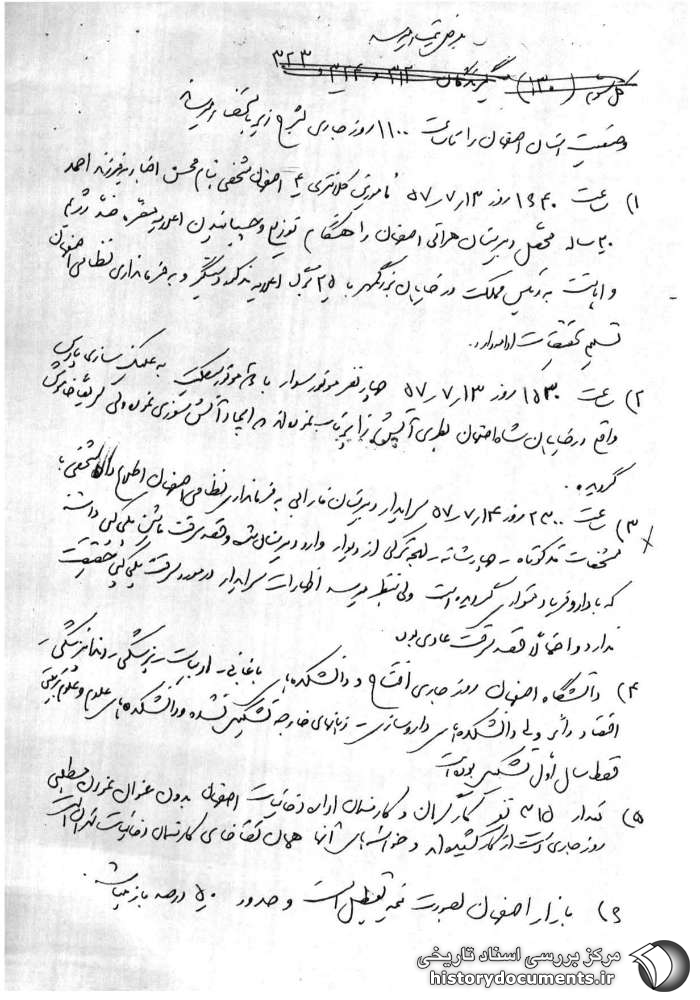 بعرض تیمسار میرسد
گیرندگان ۳۲۲ و ۳۱۲ و ۳۲۳
وضعیت استان اصفهان را تا ساعت ۱۱۰۰ روز جاری بشرح زیر باستحضار میرساند
۱) ساعت ۱۶۴۰ روز ۵۷٫۷٫۱۳ مامورین کلانتری ۴ اصفهان شخصی بنام محسن اخباری فرزند احمد
۲۰ ساله محصل دبیرستان هراتی اصفهان را هنگام توزیع و چسبانیدن اعلامیه مضره ضد رژیم
و اهانت به رئیس مملکت در خیابان بزرگمهر با ۲۵ برگ اعلامیه دستگیر و به فرمانداری نظامی اصفهان
تسلیم تحقیقات ادامه دارد.
۲) ساعت ۱۵۳۰ روز ۵۷٫۷٫۱۳ چهار نفر موتور سوار با موتورسیکلت به عینک سازی پارس
واقع در خیابان شاه اصفهان بطری آتش زا پرتاب نموده اند که ایجاد آتش سوزی نموده ولی سریعا خاموش
گردیده.
۳) ساعت ۲۳۰۰ روز ۵۷٫۷٫۱۴ سرایدار دبیرستان فارابی به فرمانداری نظامی اصفهان اطلاع داد شخصی با
مشخصات قد کوتاه - چهارشانه - لهجه ترکی از دیوار وارد دبیرستان شده و قصد سرقت ماشین پلی کپی داشته
که با داد و فریاد متواری گردیده است ولی بنظر میرسد اظهارات سرایدار در مورد سرقت پلی کپی حقیقت
ندارد و احتمالا قصد سرقت عادی بوده
۴) دانشگاه اصفهان روز جاری افتتاح و دانشکده های ادبیات - پزشکی - دندانپزشکی -
اقتصاد دائر ولی دانشکده های داروسازی - زبانهای خارجه تشکیل نشده و دانشکده های علوم و علوم تربیتی
فقط سال اول تشکیل بوده است
۵) تعداد ۳۱۵ نفر کارگران و کارمندان اداره دخانیات اصفهان بدون عنوان نمودن مطلبی
روز جاری دست از کار کشیده اند و خواسته های آنها همان تقاضای کارمندان دخانیات تهران است
۶) بازار اصفهان بصورت نیمه تعطیل است و حدود ۵۰ درصد باز میباشد.
مرکز بررسی اسناد تاریخی
historydocuments.ir